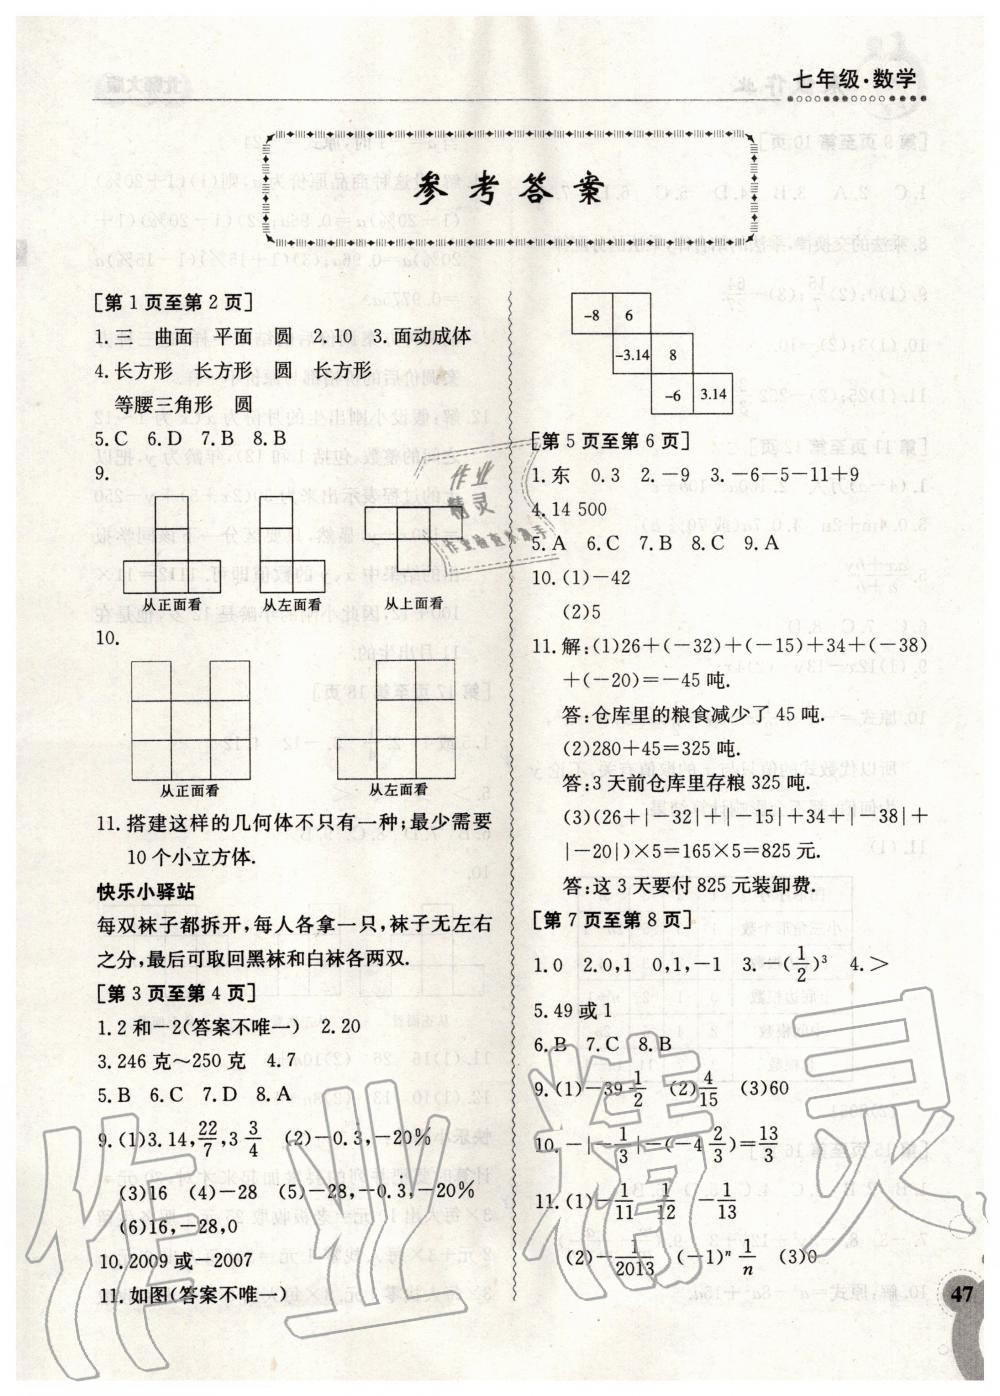 七年级·数学
参考答案
[第1页至第2页]
1.三 曲面 平面 圆 2.10 3.面动成体
4.长方形 长方形 圆 长方形
等腰三角形 圆
5.C 6.D 7.B 8.B
9.
从正面看 从左面看 从上面看
10.
从正面看 从左面看
11.搭建这样的几何体不只有一种;最少需要
10个小立方体.
快乐小驿站
每双袜子都拆开,每人各拿一只,袜子无左右
之分,最后可取回黑袜和白袜各两双.
[第3页至第4页]
1.2和-2(答案不唯一) 2.20
3.246克~250克 4.7
5.B 6.C 7.D 8.A
9.(1)3.14,22/7,3 3/4 (2)-0.3̇,-20%
(3)16 (4)-28 (5)-28,-0.3̇,-20%
(6)16,-28,0
10.2009或-2007
11.如图(答案不唯一)
-8 6
-3.14 8
-6 3.14
[第5页至第6页]
1.东 0.3 2.-9 3.-6-5-11+9
4.14 500
5.A 6.C 7.B 8.C 9.A
10.(1)-42
(2)5
11.解:(1)26+(-32)+(-15)+34+(-38)
+(-20)=-45吨.
答:仓库里的粮食减少了45吨.
(2)280+45=325吨.
答:3天前仓库里存粮325吨.
(3)(26+|-32|+|-15|+34+|-38|+
|-20|)×5=165×5=825元.
答:这3天要付825元装卸费.
[第7页至第8页]
1.0 2.0,1 0,1,-1 3.-(1/2)³ 4.>
5.49或1
6.B 7.C 8.B
9.(1)-39 1/2 (2)4/15 (3)60
10.-|-1/3|-(-4 2/3)=13/3
11.(1)-1/11 1/12 -1/13
(2)-1/2013 (-1)ⁿ 1/n (3)0
47
作业精灵
作业检查小助手
作业精灵